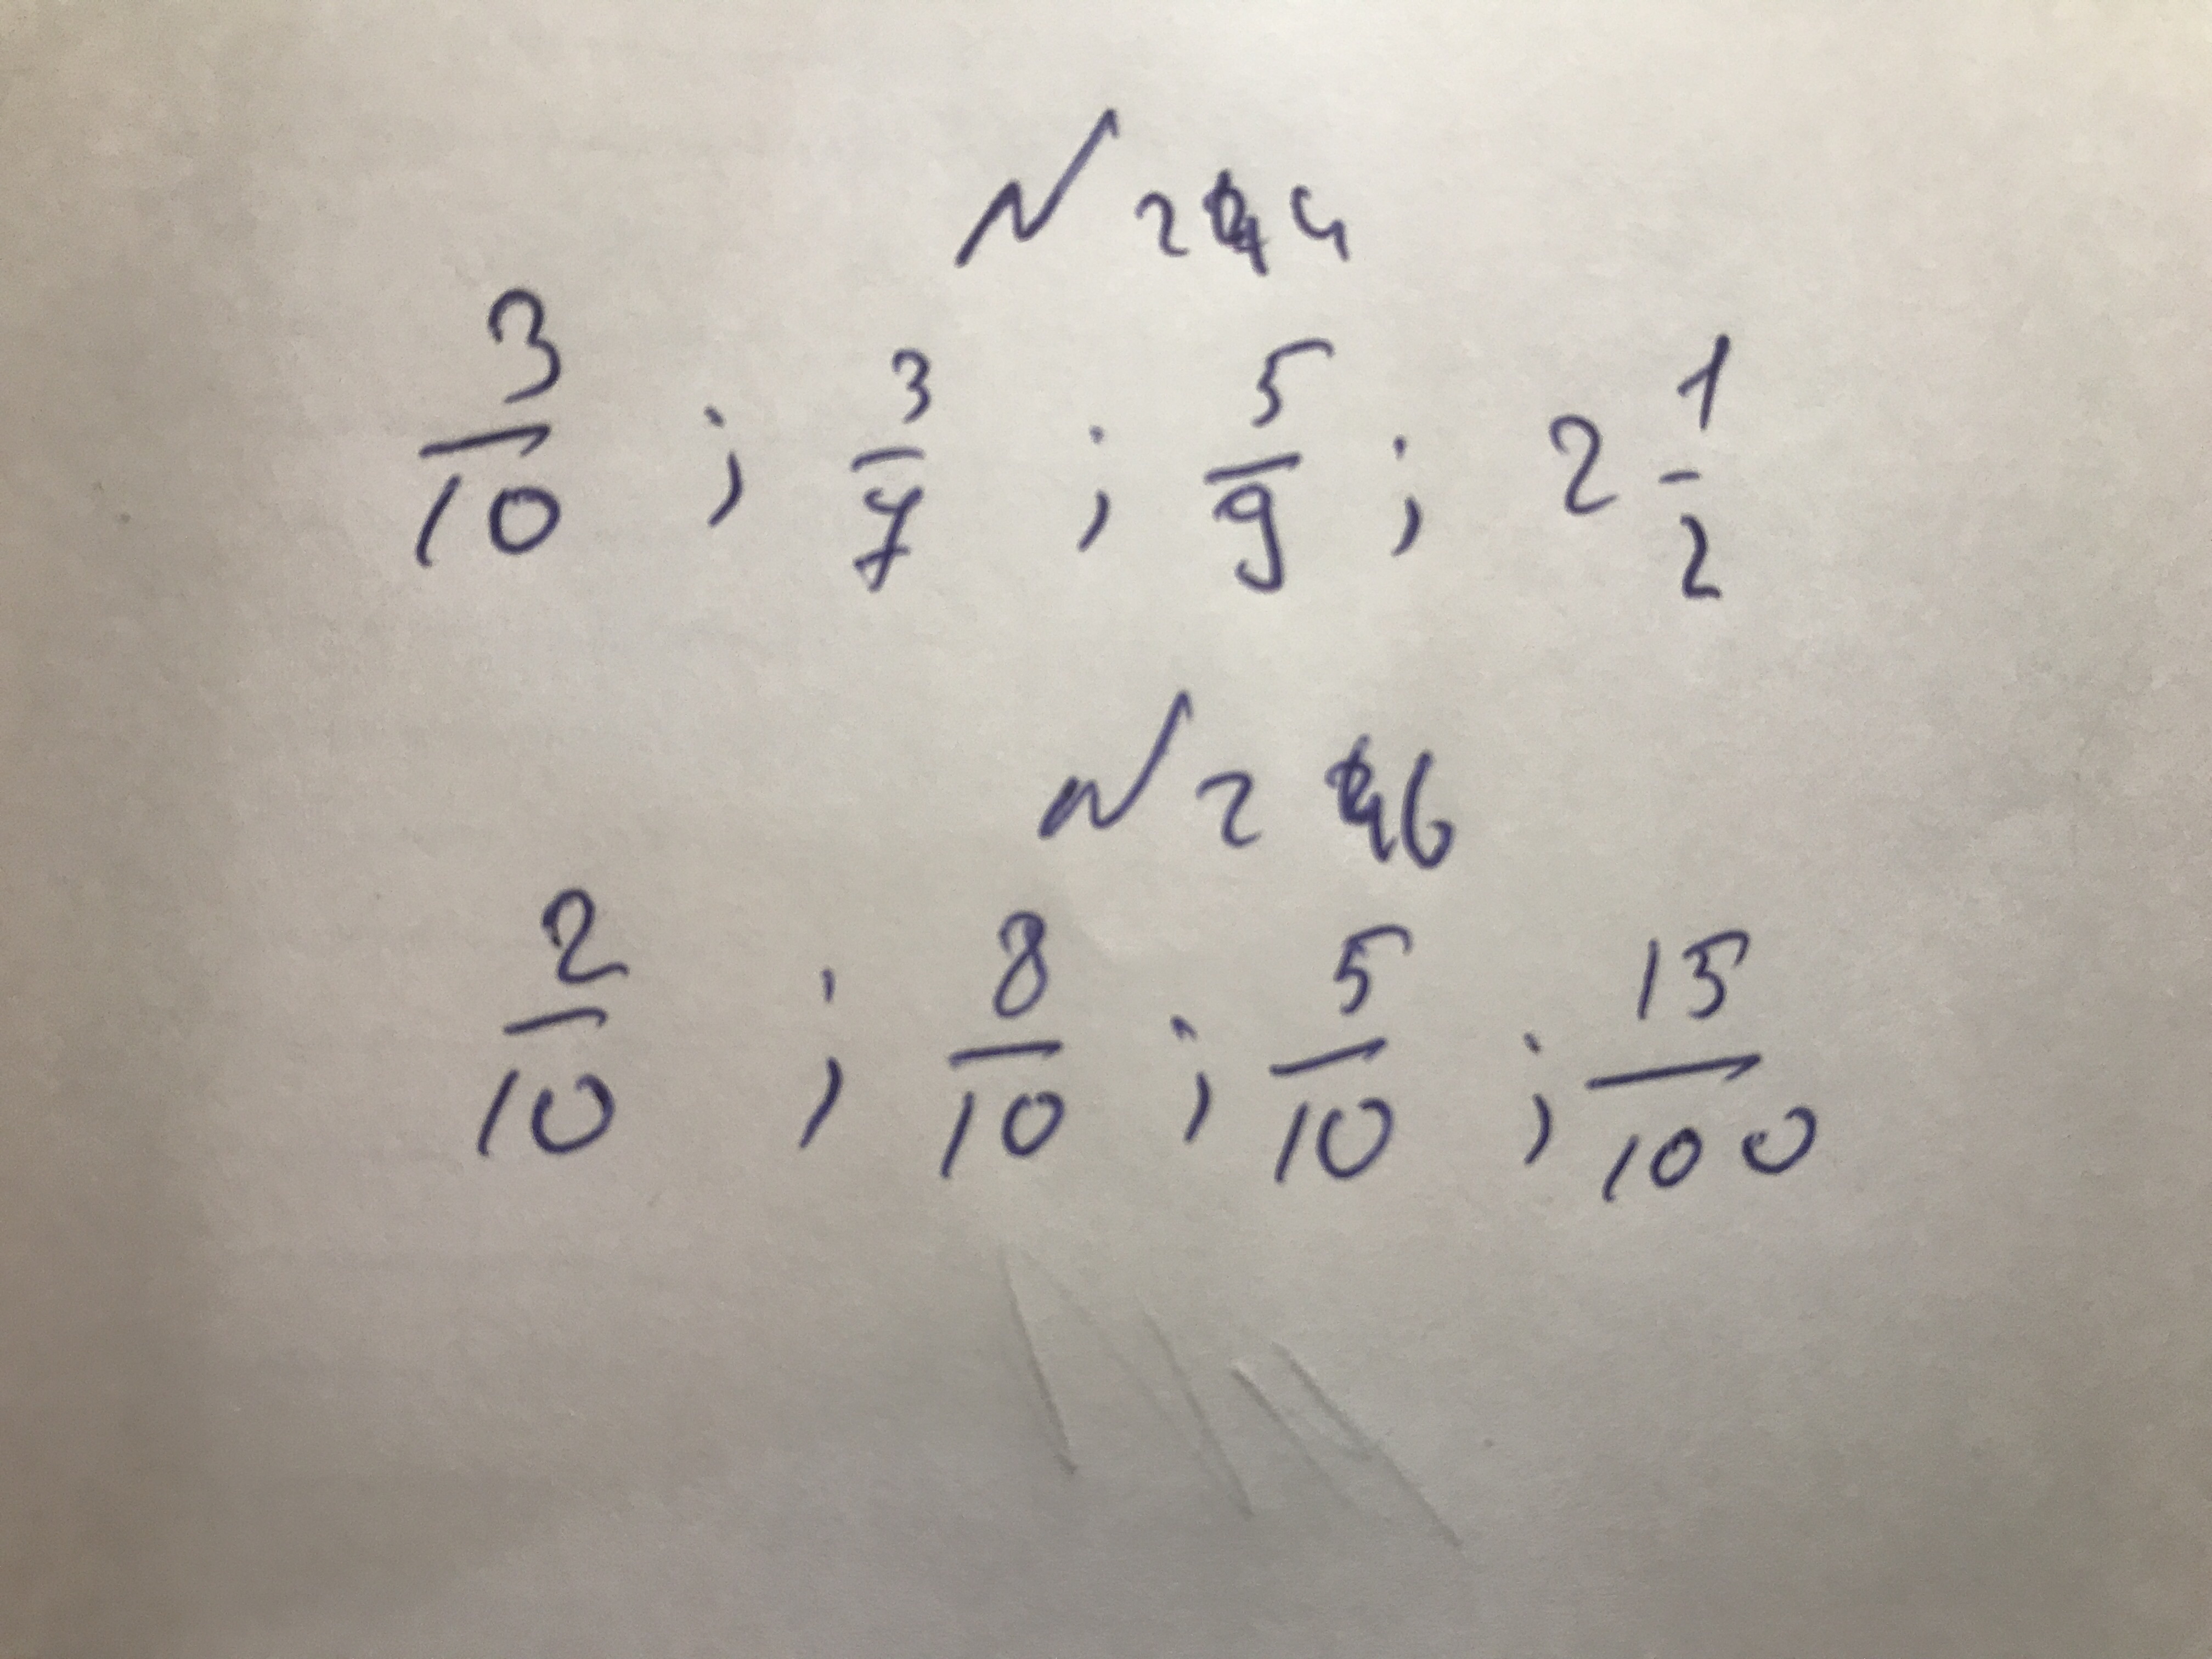 № 244
3/10 ; 3/7 ; 5/9 ; 2 1/2
№ 246
2/10 ; 8/10 ; 5/10 ; 15/100